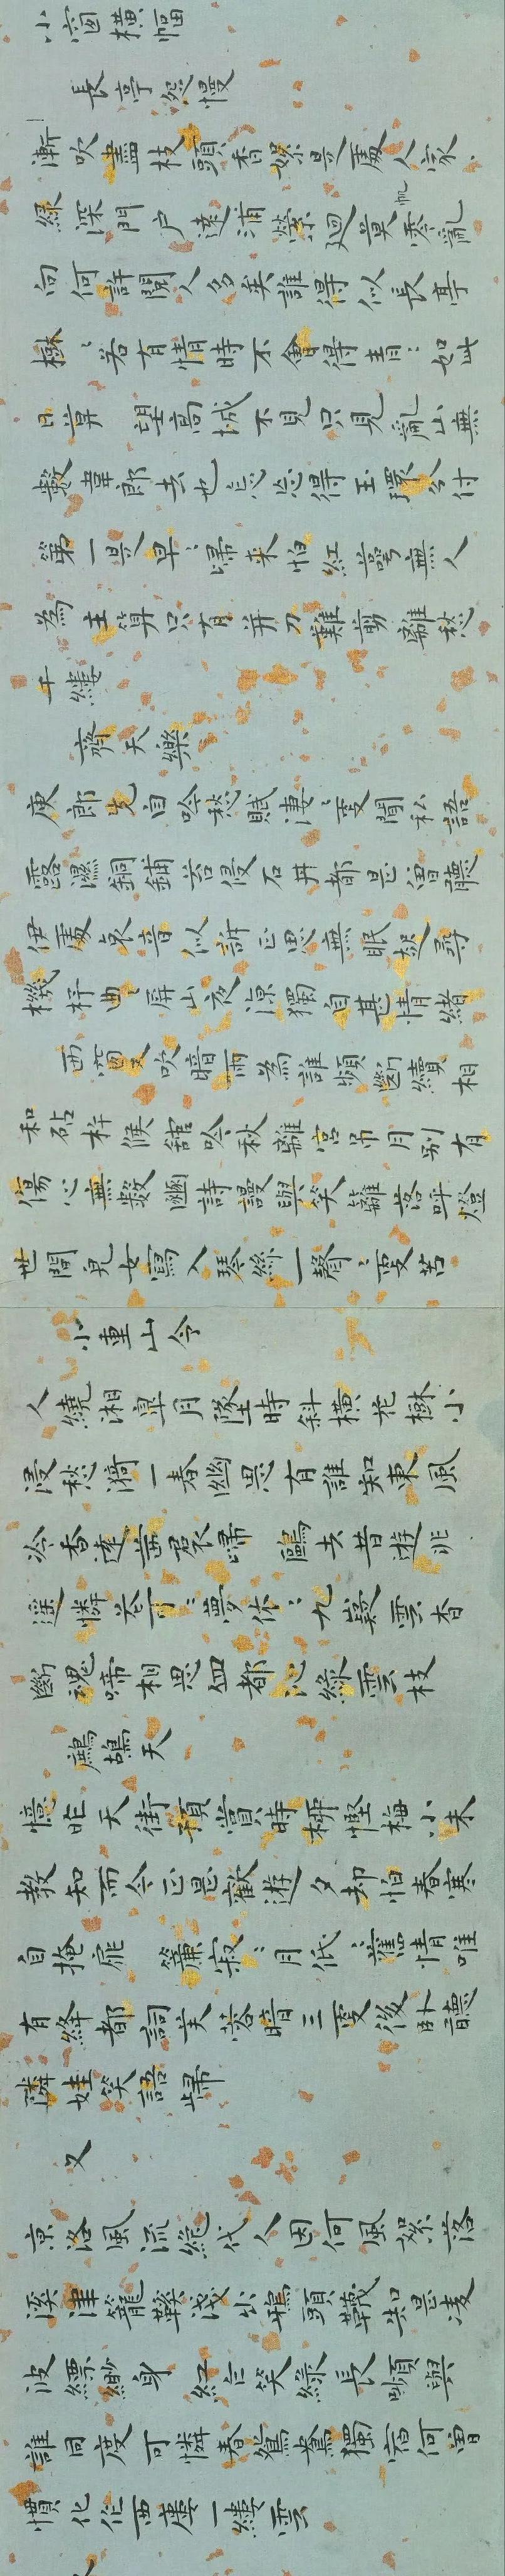 小窗橫幅
長亭怨慢
漸吹盡枝頭香絮是處人家
綠深門戶遠浦縈迴莫帆零亂
向何許閱人多矣誰得似長亭
樹〻若有情時不會得青〻如此
日莫 望高城不見只見亂山無
數韋郎去也忘怎得玉環分付
第一是早〻歸來怕紅萼無人
為主算只有并刀難翦離愁
千縷
齊天樂
庾郎先自吟愁賦淒〻更聞私語
露濕銅鋪苔侵石井都是曾聽
伊處哀音似訴正思無眠起尋
機杼曲〻屏山夜涼獨自甚情緒
西窗又吹暗雨為誰頻斷續相
和砧杵候館吟秋離宮弔月別有
傷心無數豳詩謾與笑籬落呼燈
世間兒女寫入琴絲一聲〻更苦
小重山令
人繞湘皋月墜時斜橫花樹小
浸愁漪一春幽思有誰知東風
冷香遠茜裙歸 鷗去昔遊非
遙憐花可〻夢依〻九嶷雲杳
斷魂啼相思血都沁綠雲枝
鷓鴣天
憶昨天街預賞時柳慳梅小未
教知而今正是歡遊夕却怕春寒
自掩扉 簾寂〻月低〻舊情唯
有絳都詞芙蓉暗三更後臥聽
隣娃笑語歸
又
京洛風流絕代人因何風絮落
溪津籠鞋淺出鴉頭襪知是凌
波縹緲身 紅乍笑綠長嚬與
誰同度可憐春鴛鴦獨宿何曾
慣化作西樓一縷雲